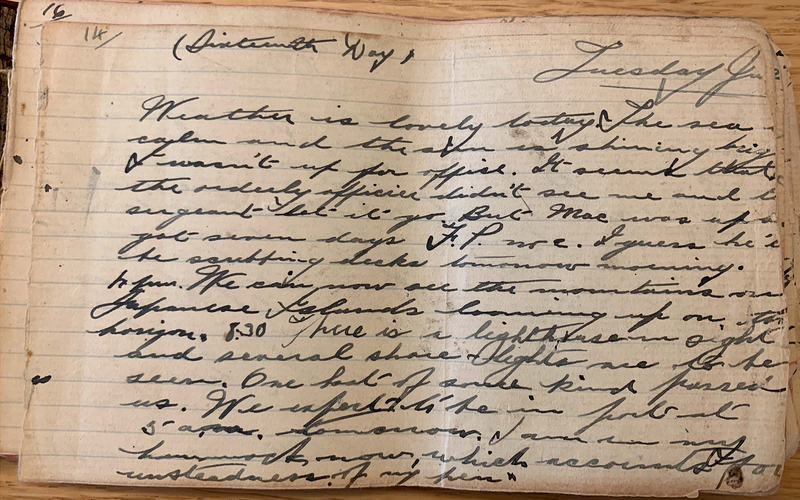 16
14/
(Sixteenth Day)
Tuesday
Weather is lovely today. The sea
calm and the sun is shining
I wasn't up for office. It seems that
the orderly officer didn't see me and
sergeant let it go. But Mac was up
got seven days F.P. no 2. I guess he'
be scrubbing decks tomorrow morning.
We can now see the mountains on
Japanese Islands looming up on
horizon. 8.30 There is a lighthouse in sight
and several shore lights are to be
seen. One boat of some kind passed
us. We expect to be in port at
5 a.m. tomorrow. I am in my
hammock now, which accounts for
unsteadiness of my pen"